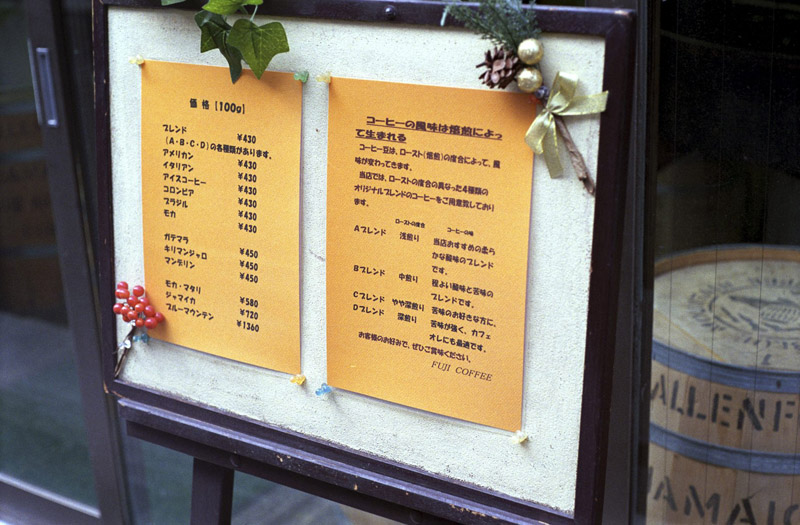 価格 [100g]
ブレンド ¥430
(A・B・C・D)の各種類があります。
アメリカン ¥430
イタリアン ¥430
アイスコーヒー ¥430
コロンビア ¥430
ブラジル ¥430
モカ ¥430
ガテマラ ¥450
キリマンジャロ ¥450
マンデリン ¥450
モカ・マタリ ¥580
ジャマイカ ¥720
ブルーマウンテン ¥1360
コーヒーの風味は焙煎によっ
て生まれる
コーヒー豆は、ロースト(焙煎)の度合によって、風
味が変わってきます。
当店では、ローストの度合の異なった4種類の
オリジナルブレンドのコーヒーをご用意しており
ます。
ローストの度合 コーヒーの味
Aブレンド 浅煎り 当店おすすめの柔ら
かな酸味のブレンド
です。
Bブレンド 中煎り 程よい酸味と苦味の
ブレンドです。
Cブレンド やや深煎り 苦味のお好きな方に。
Dブレンド 深煎り 苦味が強く、カフェ
オレにも最適です。
お客様のお好みで、ぜひご賞味ください。
FUJI COFFEE
ALLENF
JAMAIC